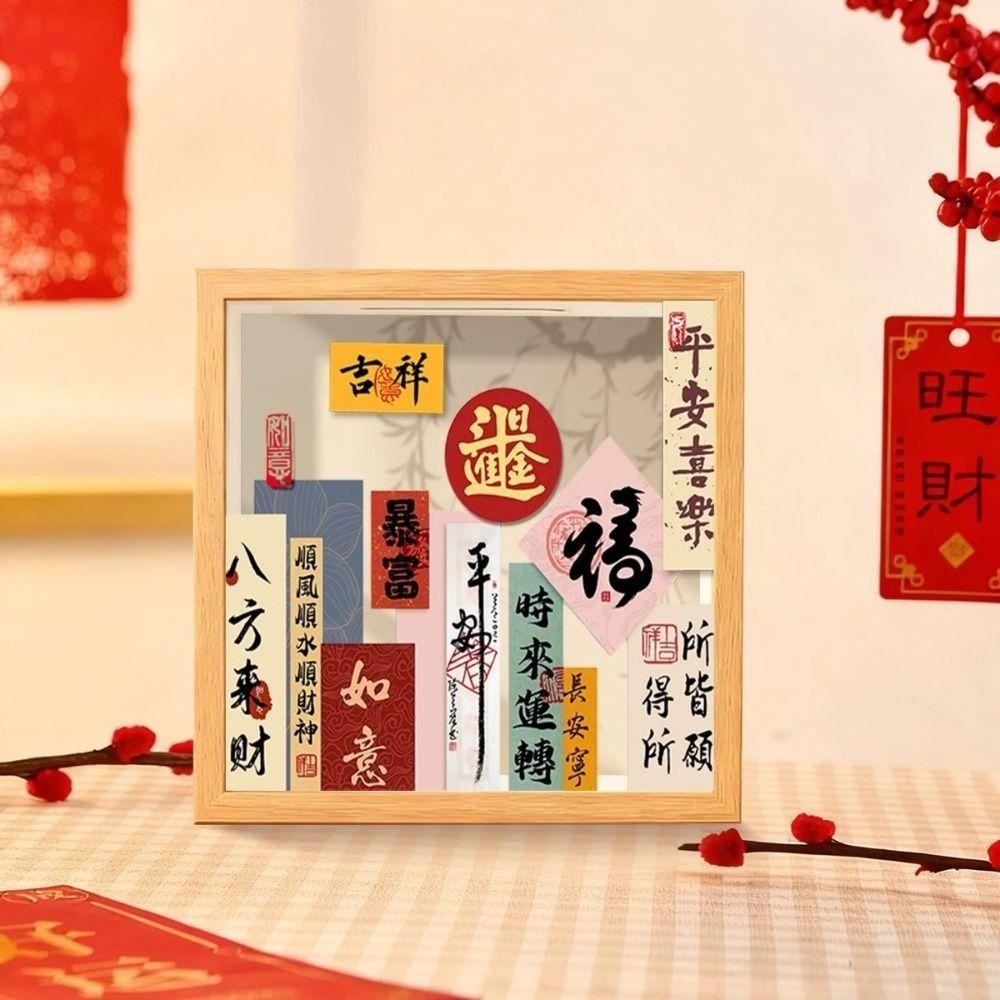 吉祥
如意
日進斗金
平安喜樂
八方来财
順風順水順財神
暴富
如意
平安
福
時來運轉
長安寧
所皆願
得所
旺財